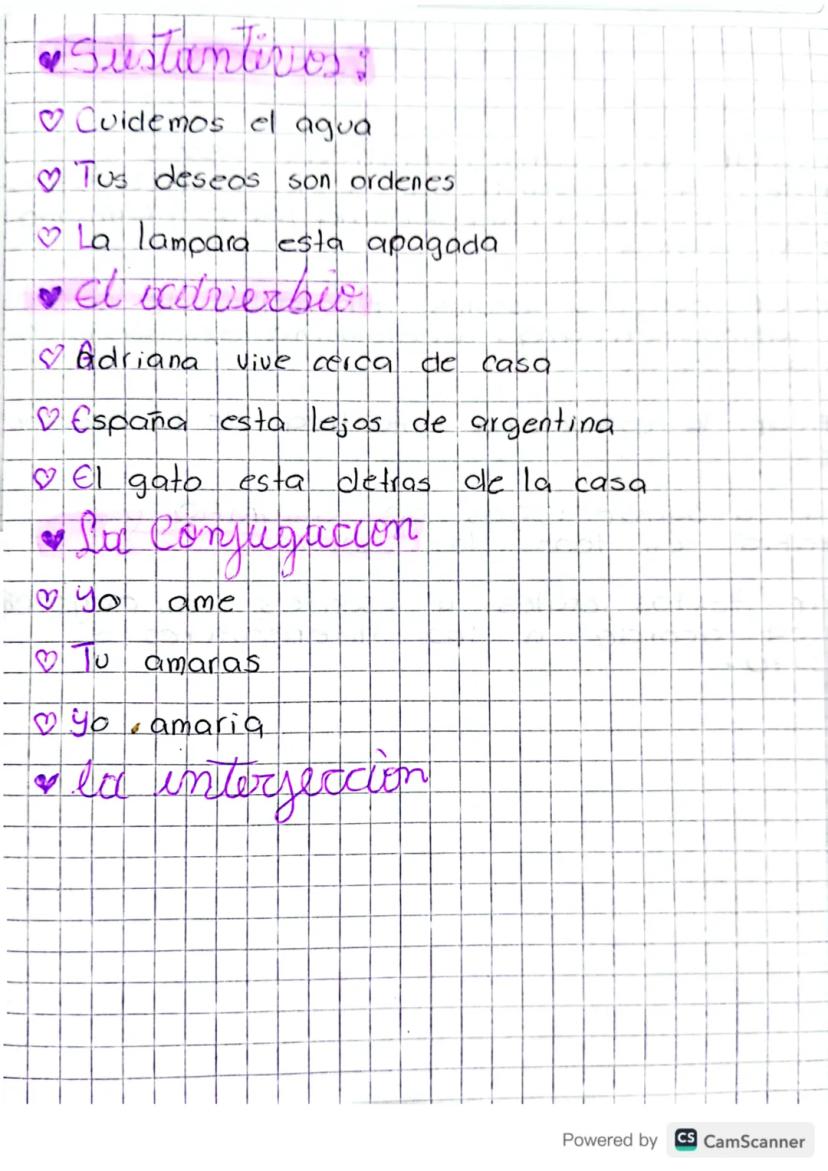 Sustantivos:
Cuidemos el agua
Tus deseos son ordenes
La lampara esta apagada
El adverbio
Adriana vive cerca de casa
España esta lejos de argentina
El gato esta detras de la casa
La Conjugacion
yo ame
Tu amaras
yo amaria
la interjección
Powered by CS CamScanner